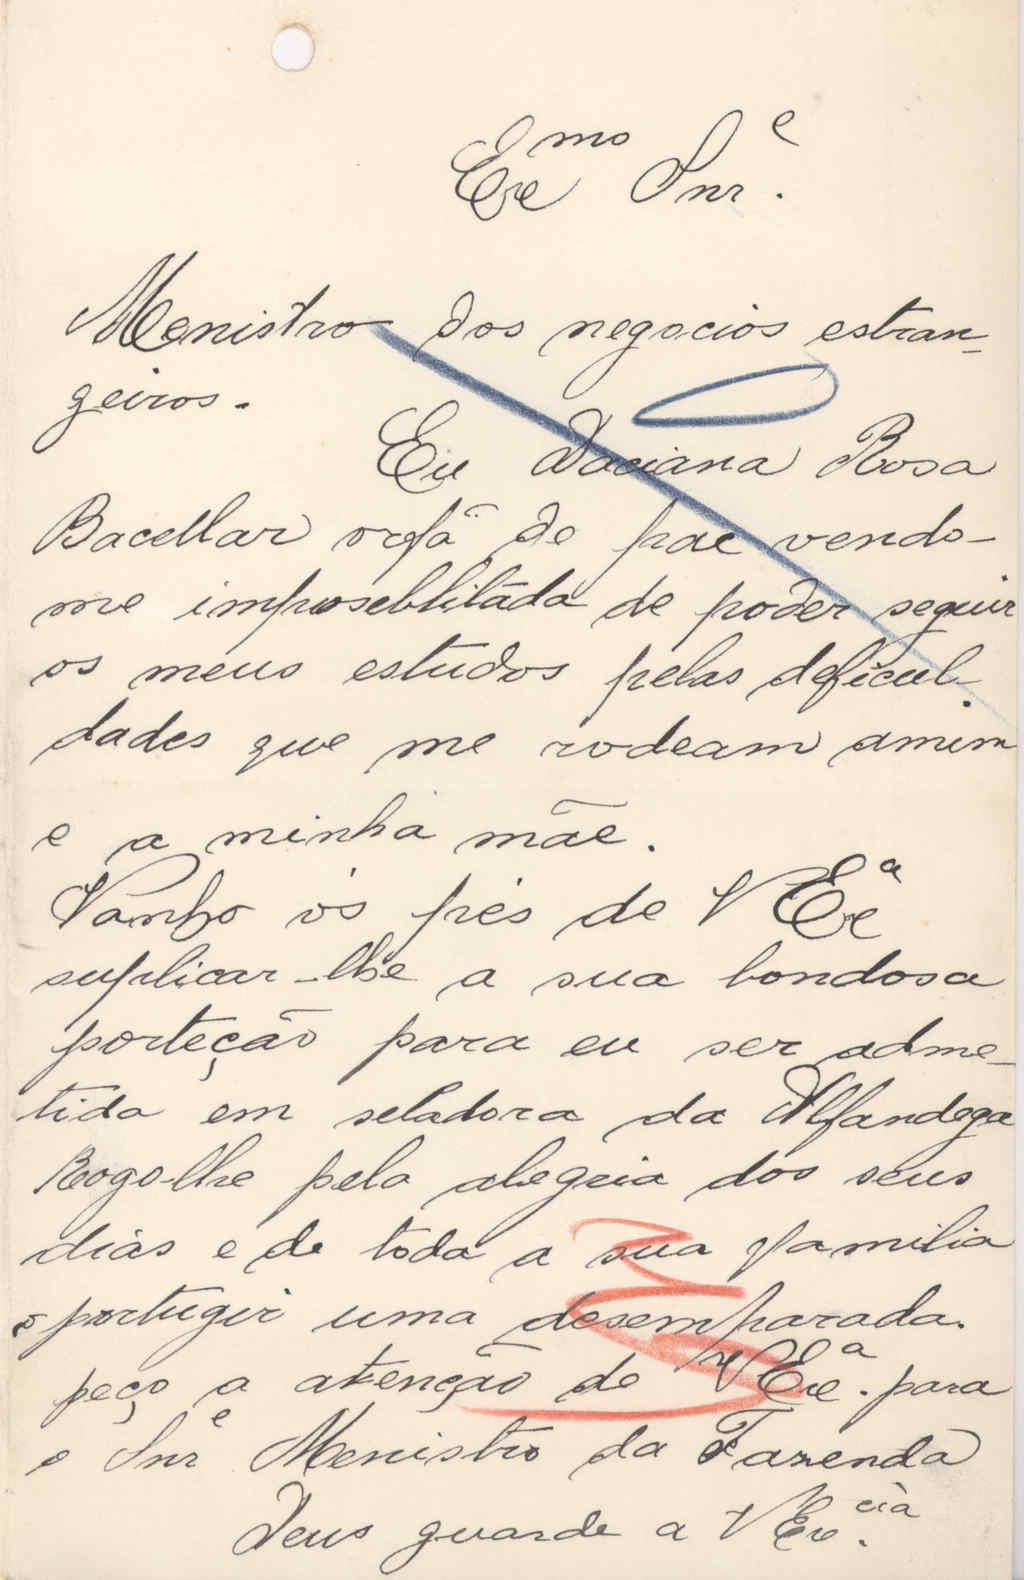 Exe^mo Snr.^e
Menistro dos negocios estran-
geiros.
Eu Daciana Rosa
Bacellar orfã de pae vendo-
me imposeblilitada de poder seguir
os meus estudos pelas deficul-
dades que me rodeam amim
e a minha mãe.
Vanho ós pés de VExe^a
suplicar-lhe a sua bondosa
porteção para eu ser adme-
tida em seladora da Alfandega
Rogo-lhe pela alegria dos seus
dias e de toda a sua familia
o portugir uma desemparada.
peço a atenção de VExe^a. para
o Snr^e Menistro da Fazenda
Deus guarde a VExe.^cia